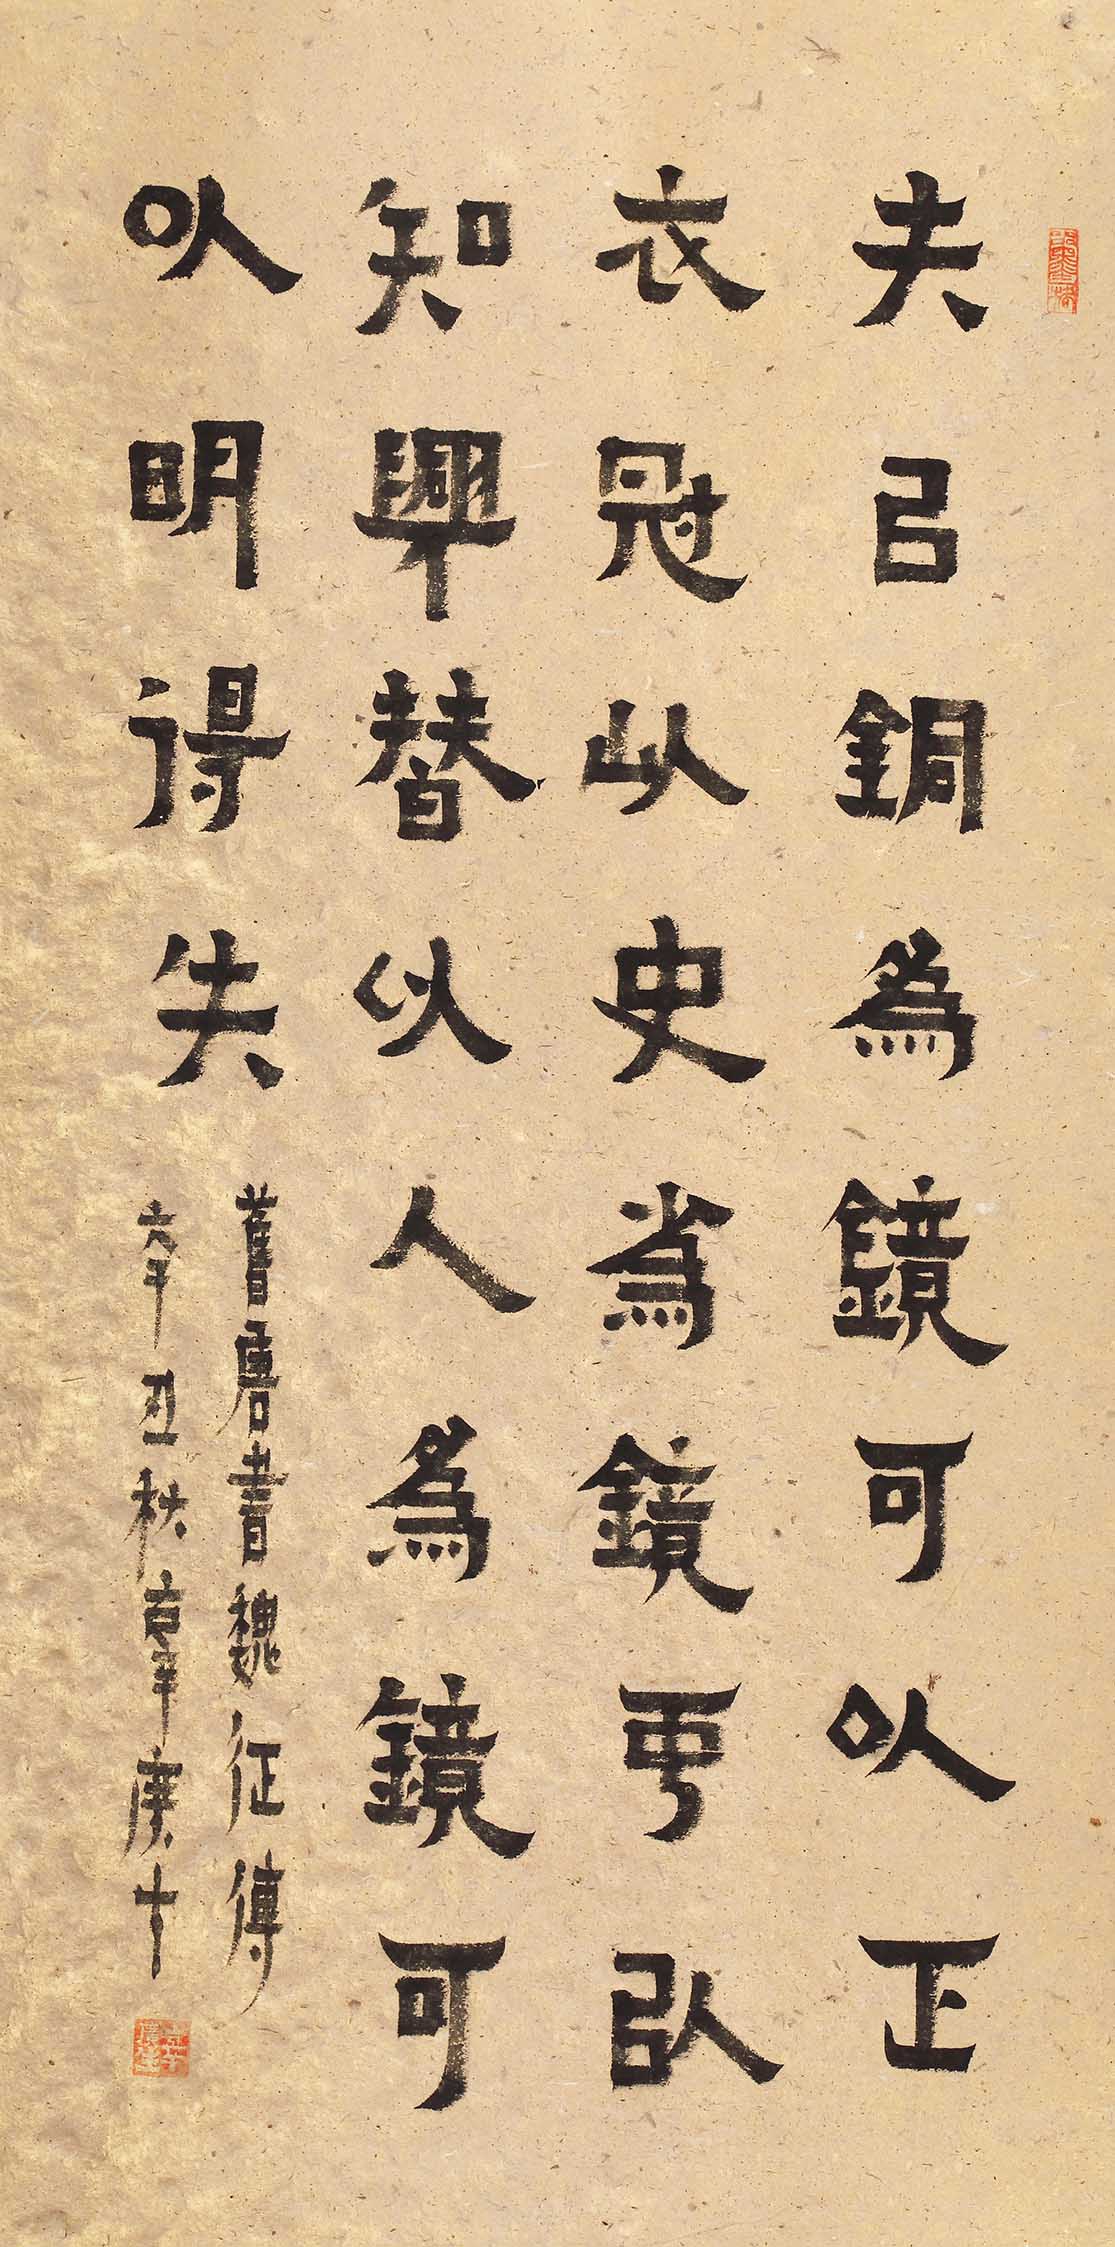 夫㠯銅為鏡可以正
衣冠以史為鏡可以
知興替以人為鏡可
以明得失
舊唐書魏征傳
辛丑秋辜庚十